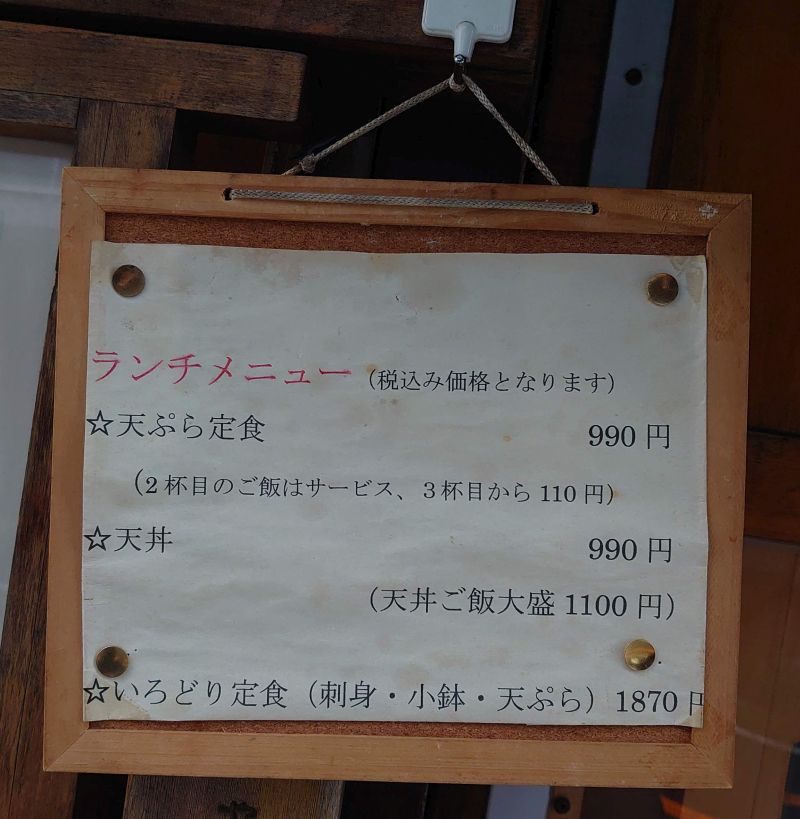 ランチメニュー（税込み価格となります）
☆天ぷら定食 990 円
（2 杯目のご飯はサービス、３杯目から 110 円）
☆天丼 990 円
（天丼ご飯大盛 1100 円）
☆いろどり定食（刺身・小鉢・天ぷら）1870 円